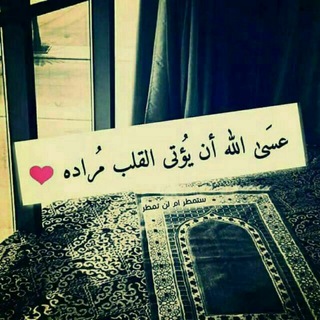 عسَىٰ الله أن يُؤتى القلب مُراده
ستمطر ام لن تمطر